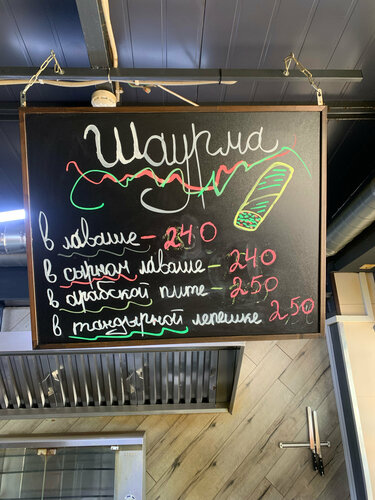 Шаурма
в лаваше - 240
в сырном лаваше - 240
в арабской пите - 250
в тандырной лепешке 250